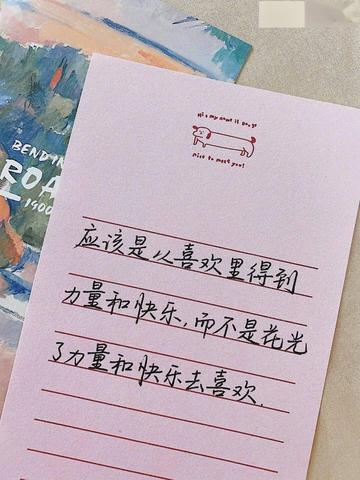 BENDIN
ROA
1900
Hi my name is
nice to meet you!
应该是从喜欢里得到
力量和快乐,而不是花光
了力量和快乐去喜欢.